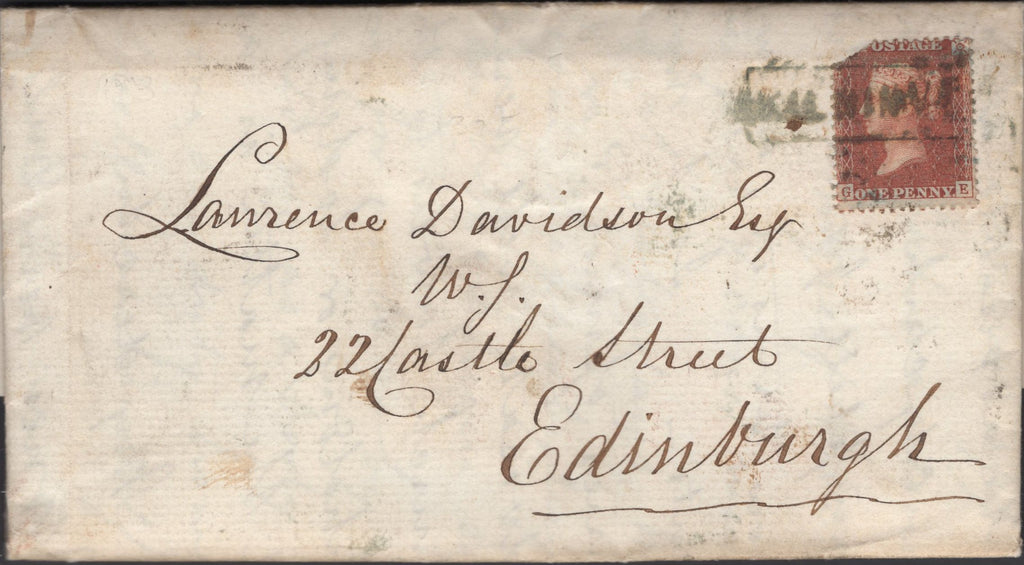 POSTAGE
G ONE PENNY E
Lawrence Davidson Esq
W.S.
22 Castle Street
Edinburgh